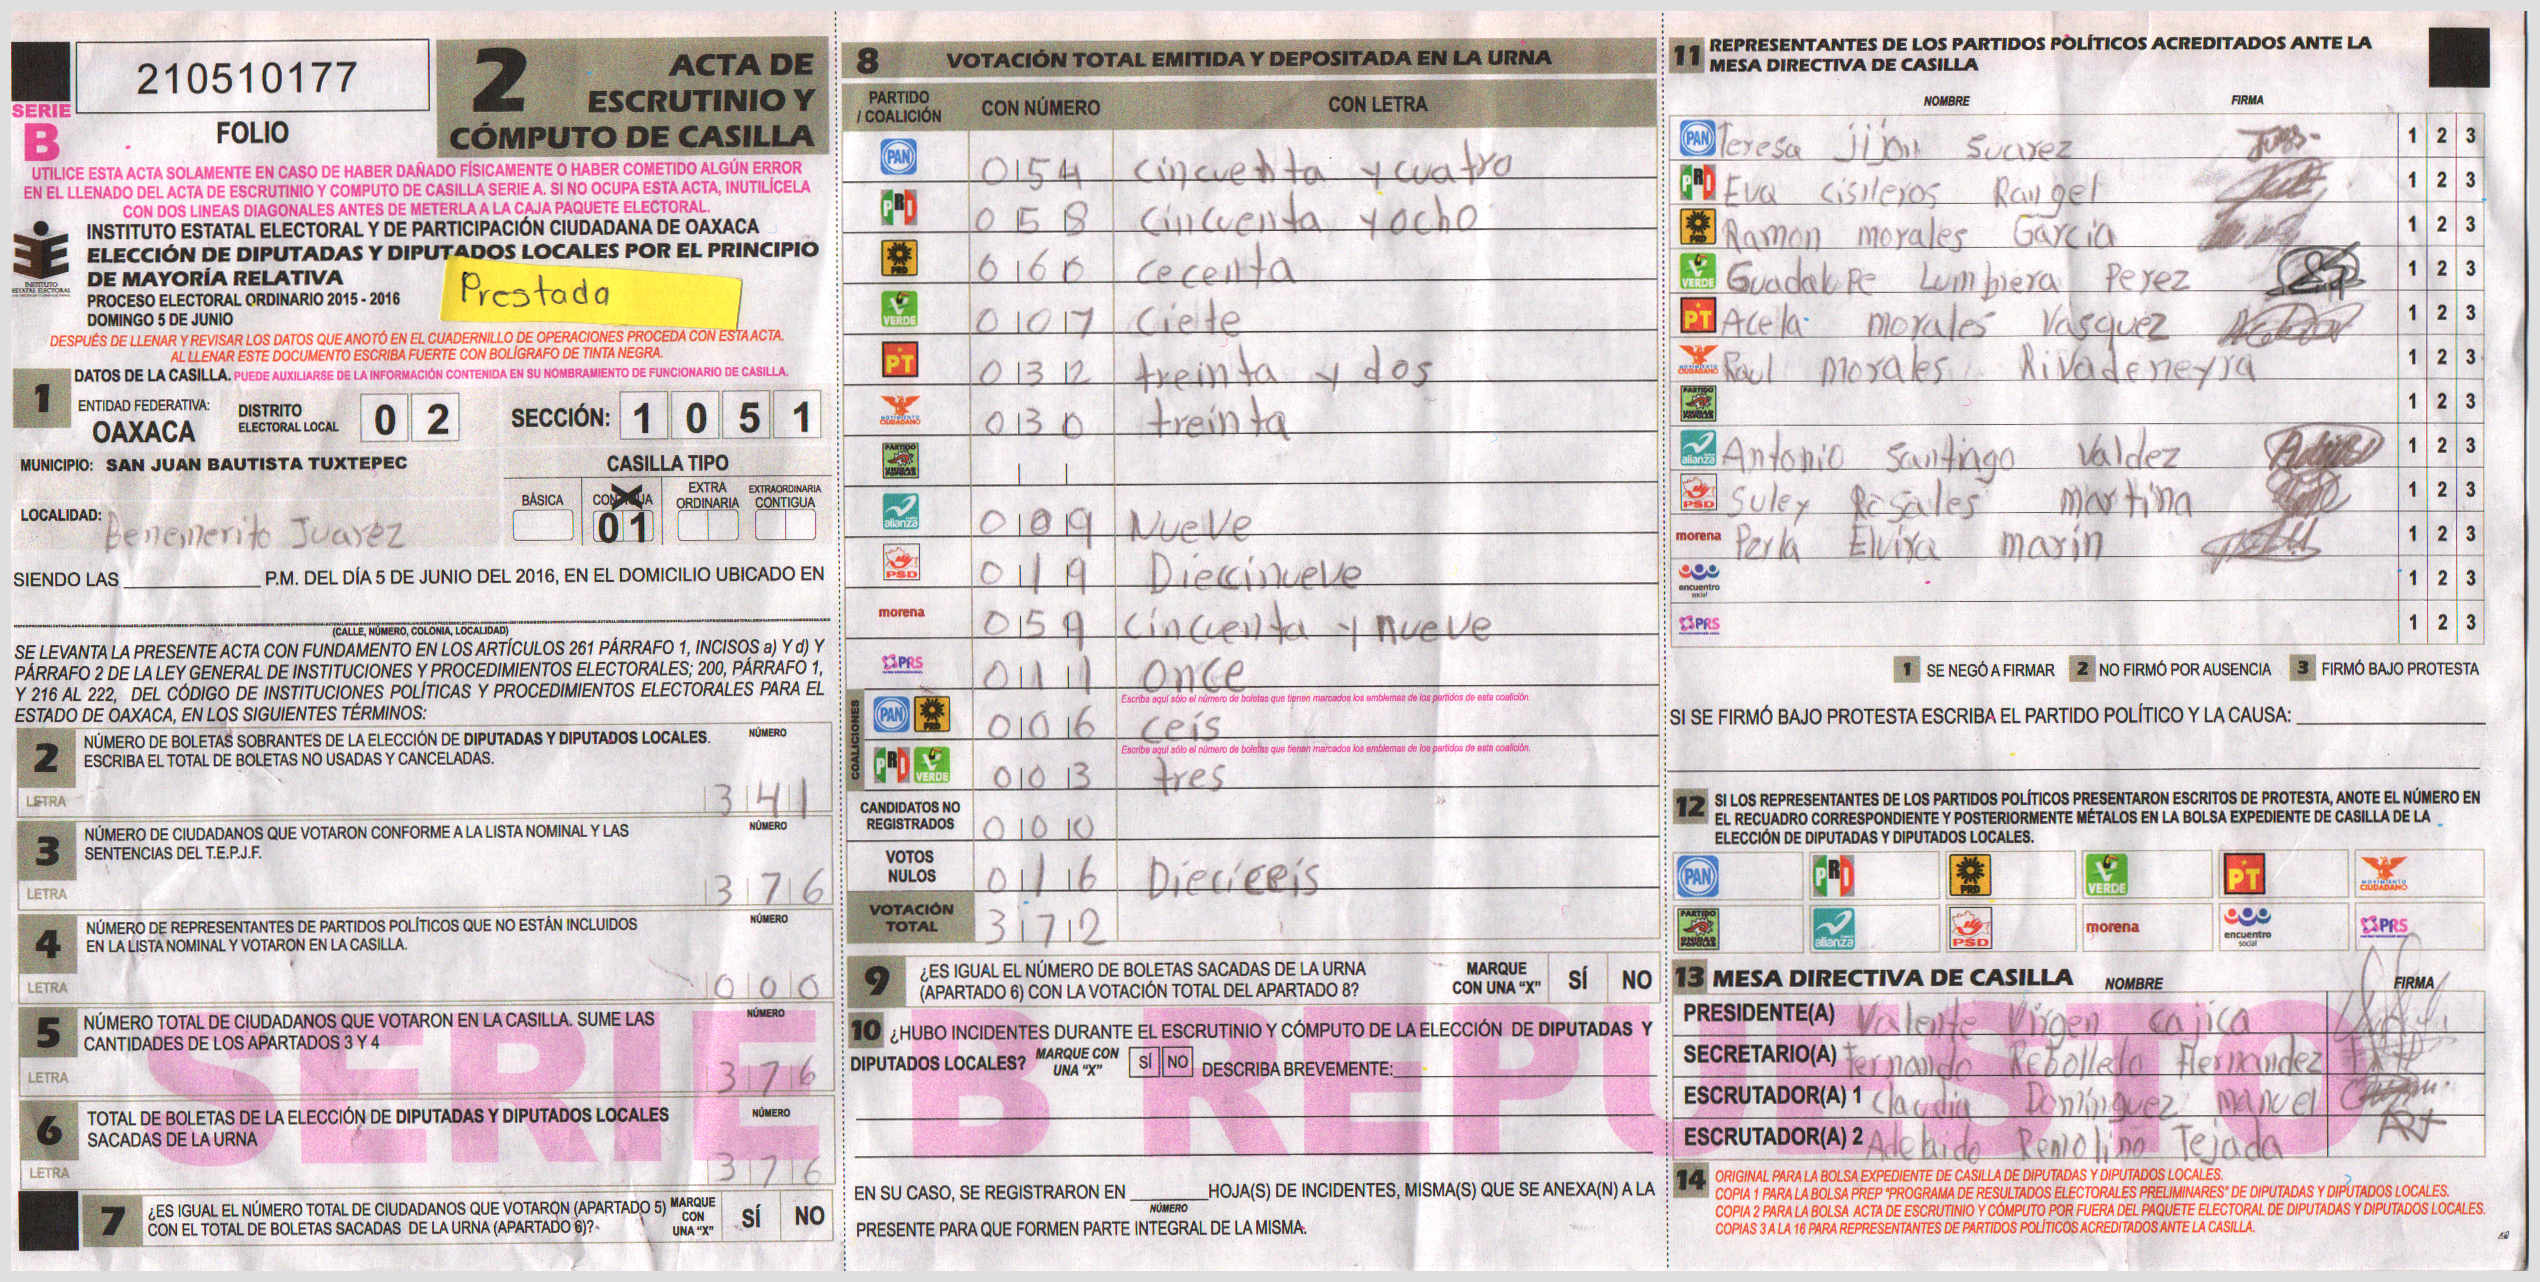 210510177
FOLIO
SERIE
B
2 ACTA DE
ESCRUTINIO Y
CÓMPUTO DE CASILLA
UTILICE ESTA ACTA SOLAMENTE EN CASO DE HABER DAÑADO FÍSICAMENTE O HABER COMETIDO ALGÚN ERROR
EN EL LLENADO DEL ACTA DE ESCRUTINIO Y COMPUTO DE CASILLA SERIE A. SI NO OCUPA ESTA ACTA, INUTILÍCELA
CON DOS LINEAS DIAGONALES ANTES DE METERLA A LA CAJA PAQUETE ELECTORAL.
INSTITUTO ESTATAL ELECTORAL Y DE PARTICIPACIÓN CIUDADANA DE OAXACA
ELECCIÓN DE DIPUTADAS Y DIPUTADOS LOCALES POR EL PRINCIPIO
DE MAYORÍA RELATIVA
PROCESO ELECTORAL ORDINARIO 2015 - 2016
DOMINGO 5 DE JUNIO
Prestada
DESPUÉS DE LLENAR Y REVISAR LOS DATOS QUE ANOTÓ EN EL CUADERNILLO DE OPERACIONES PROCEDA CON ESTA ACTA.
AL LLENAR ESTE DOCUMENTO ESCRIBA FUERTE CON BOLÍGRAFO DE TINTA NEGRA.
1 DATOS DE LA CASILLA. PUEDE AUXILIARSE DE LA INFORMACIÓN CONTENIDA EN SU NOMBRAMIENTO DE FUNCIONARIO DE CASILLA.
ENTIDAD FEDERATIVA: OAXACA
DISTRITO ELECTORAL LOCAL 0 2
SECCIÓN: 1 0 5 1
MUNICIPIO: SAN JUAN BAUTISTA TUXTEPEC
CASILLA TIPO
BÁSICA CONTIGUA EXTRA ORDINARIA EXTRAORDINARIA CONTIGUA
01
LOCALIDAD: Benemerito Juarez
SIENDO LAS P.M. DEL DÍA 5 DE JUNIO DEL 2016, EN EL DOMICILIO UBICADO EN
(CALLE, NÚMERO, COLONIA, LOCALIDAD)
SE LEVANTA LA PRESENTE ACTA CON FUNDAMENTO EN LOS ARTÍCULOS 261 PÁRRAFO 1, INCISOS a) Y d) Y
PÁRRAFO 2 DE LA LEY GENERAL DE INSTITUCIONES Y PROCEDIMIENTOS ELECTORALES; 200, PÁRRAFO 1,
Y 216 AL 222, DEL CÓDIGO DE INSTITUCIONES POLÍTICAS Y PROCEDIMIENTOS ELECTORALES PARA EL
ESTADO DE OAXACA, EN LOS SIGUIENTES TÉRMINOS:
2 NÚMERO DE BOLETAS SOBRANTES DE LA ELECCIÓN DE DIPUTADAS Y DIPUTADOS LOCALES. NÚMERO
ESCRIBA EL TOTAL DE BOLETAS NO USADAS Y CANCELADAS.
LETRA 341
3 NÚMERO DE CIUDADANOS QUE VOTARON CONFORME A LA LISTA NOMINAL Y LAS NÚMERO
SENTENCIAS DEL T.E.P.J.F.
LETRA 376
4 NÚMERO DE REPRESENTANTES DE PARTIDOS POLÍTICOS QUE NO ESTÁN INCLUIDOS NÚMERO
EN LA LISTA NOMINAL Y VOTARON EN LA CASILLA.
LETRA 000
5 NÚMERO TOTAL DE CIUDADANOS QUE VOTARON EN LA CASILLA. SUME LAS NÚMERO
CANTIDADES DE LOS APARTADOS 3 Y 4
LETRA 376
6 TOTAL DE BOLETAS DE LA ELECCIÓN DE DIPUTADAS Y DIPUTADOS LOCALES NÚMERO
SACADAS DE LA URNA
LETRA 376
7 ¿ES IGUAL EL NÚMERO TOTAL DE CIUDADANOS QUE VOTARON (APARTADO 5)
CON EL TOTAL DE BOLETAS SACADAS DE LA URNA (APARTADO 6)? MARQUE CON UNA "X" SÍ NO
SERIE B REPUESTO
8 VOTACIÓN TOTAL EMITIDA Y DEPOSITADA EN LA URNA
PARTIDO / COALICIÓN CON NÚMERO CON LETRA
PAN 054 cincuenta y cuatro
PRI 058 cincuenta y ocho
PRD 060 cecenta
VERDE 007 ciete
PT 032 treinta y dos
MOVIMIENTO CIUDADANO 030 treinta
PARTIDO UNIDAD POPULAR
alianza 009 Nueve
PSD 019 Diecinueve
morena 059 cincuenta y nueve
PRS 011 once
COALICIONES
Escriba aquí sólo el número de boletas que tienen marcados los emblemas de los partidos de esta coalición.
PAN PRD 006 ceis
Escriba aquí sólo el número de boletas que tienen marcados los emblemas de los partidos de esta coalición.
PRI VERDE 003 tres
CANDIDATOS NO REGISTRADOS 000
VOTOS NULOS 016 Dieciceis
VOTACIÓN TOTAL 372
9 ¿ES IGUAL EL NÚMERO DE BOLETAS SACADAS DE LA URNA
(APARTADO 6) CON LA VOTACIÓN TOTAL DEL APARTADO 8? MARQUE CON UNA "X" SÍ NO
10 ¿HUBO INCIDENTES DURANTE EL ESCRUTINIO Y CÓMPUTO DE LA ELECCIÓN DE DIPUTADAS Y
DIPUTADOS LOCALES? MARQUE CON UNA "X" SÍ NO DESCRIBA BREVEMENTE:
EN SU CASO, SE REGISTRARON EN HOJA(S) DE INCIDENTES, MISMA(S) QUE SE ANEXA(N) A LA
NÚMERO
PRESENTE PARA QUE FORMEN PARTE INTEGRAL DE LA MISMA.
11 REPRESENTANTES DE LOS PARTIDOS POLÍTICOS ACREDITADOS ANTE LA
MESA DIRECTIVA DE CASILLA
NOMBRE FIRMA
PAN Teresa jijon Suarez 1 2 3
PRI Eva Cisneros Rangel 1 2 3
PRD Ramon morales Garcia 1 2 3
VERDE Guadalupe Lumbiera Perez 1 2 3
PT Acela morales Vasquez 1 2 3
MOVIMIENTO CIUDADANO Raul morales Rivadeneyra 1 2 3
PARTIDO UNIDAD POPULAR 1 2 3
alianza Antonio Santiago Valdez 1 2 3
PSD Suley Rosales martina 1 2 3
morena Perla Elvira marin 1 2 3
encuentro social 1 2 3
PRS 1 2 3
1 SE NEGÓ A FIRMAR 2 NO FIRMÓ POR AUSENCIA 3 FIRMÓ BAJO PROTESTA
SI SE FIRMÓ BAJO PROTESTA ESCRIBA EL PARTIDO POLÍTICO Y LA CAUSA:
12 SI LOS REPRESENTANTES DE LOS PARTIDOS POLÍTICOS PRESENTARON ESCRITOS DE PROTESTA, ANOTE EL NÚMERO EN
EL RECUADRO CORRESPONDIENTE Y POSTERIORMENTE MÉTALOS EN LA BOLSA EXPEDIENTE DE CASILLA DE LA
ELECCIÓN DE DIPUTADAS Y DIPUTADOS LOCALES.
PAN PRI PRD VERDE PT MOVIMIENTO CIUDADANO
PARTIDO UNIDAD POPULAR alianza PSD morena encuentro social PRS
13 MESA DIRECTIVA DE CASILLA NOMBRE FIRMA
PRESIDENTE(A) Valente Virgen Cajica
SECRETARIO(A) Fernando Rebolledo Hernandez
ESCRUTADOR(A) 1 Claudia Domínguez manuel
ESCRUTADOR(A) 2 Adelaido Remolino Tejada
14 ORIGINAL PARA LA BOLSA EXPEDIENTE DE CASILLA DE DIPUTADAS Y DIPUTADOS LOCALES.
COPIA 1 PARA LA BOLSA PREP "PROGRAMA DE RESULTADOS ELECTORALES PRELIMINARES" DE DIPUTADAS Y DIPUTADOS LOCALES.
COPIA 2 PARA LA BOLSA ACTA DE ESCRUTINIO Y CÓMPUTO POR FUERA DEL PAQUETE ELECTORAL DE DIPUTADAS Y DIPUTADOS LOCALES.
COPIAS 3 A LA 16 PARA REPRESENTANTES DE PARTIDOS POLÍTICOS ACREDITADOS ANTE LA CASILLA.